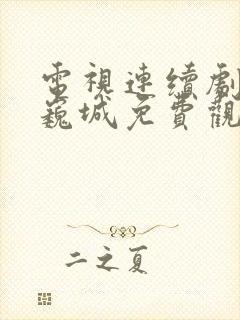 電視連續劇
巍城免費觀
二之夏